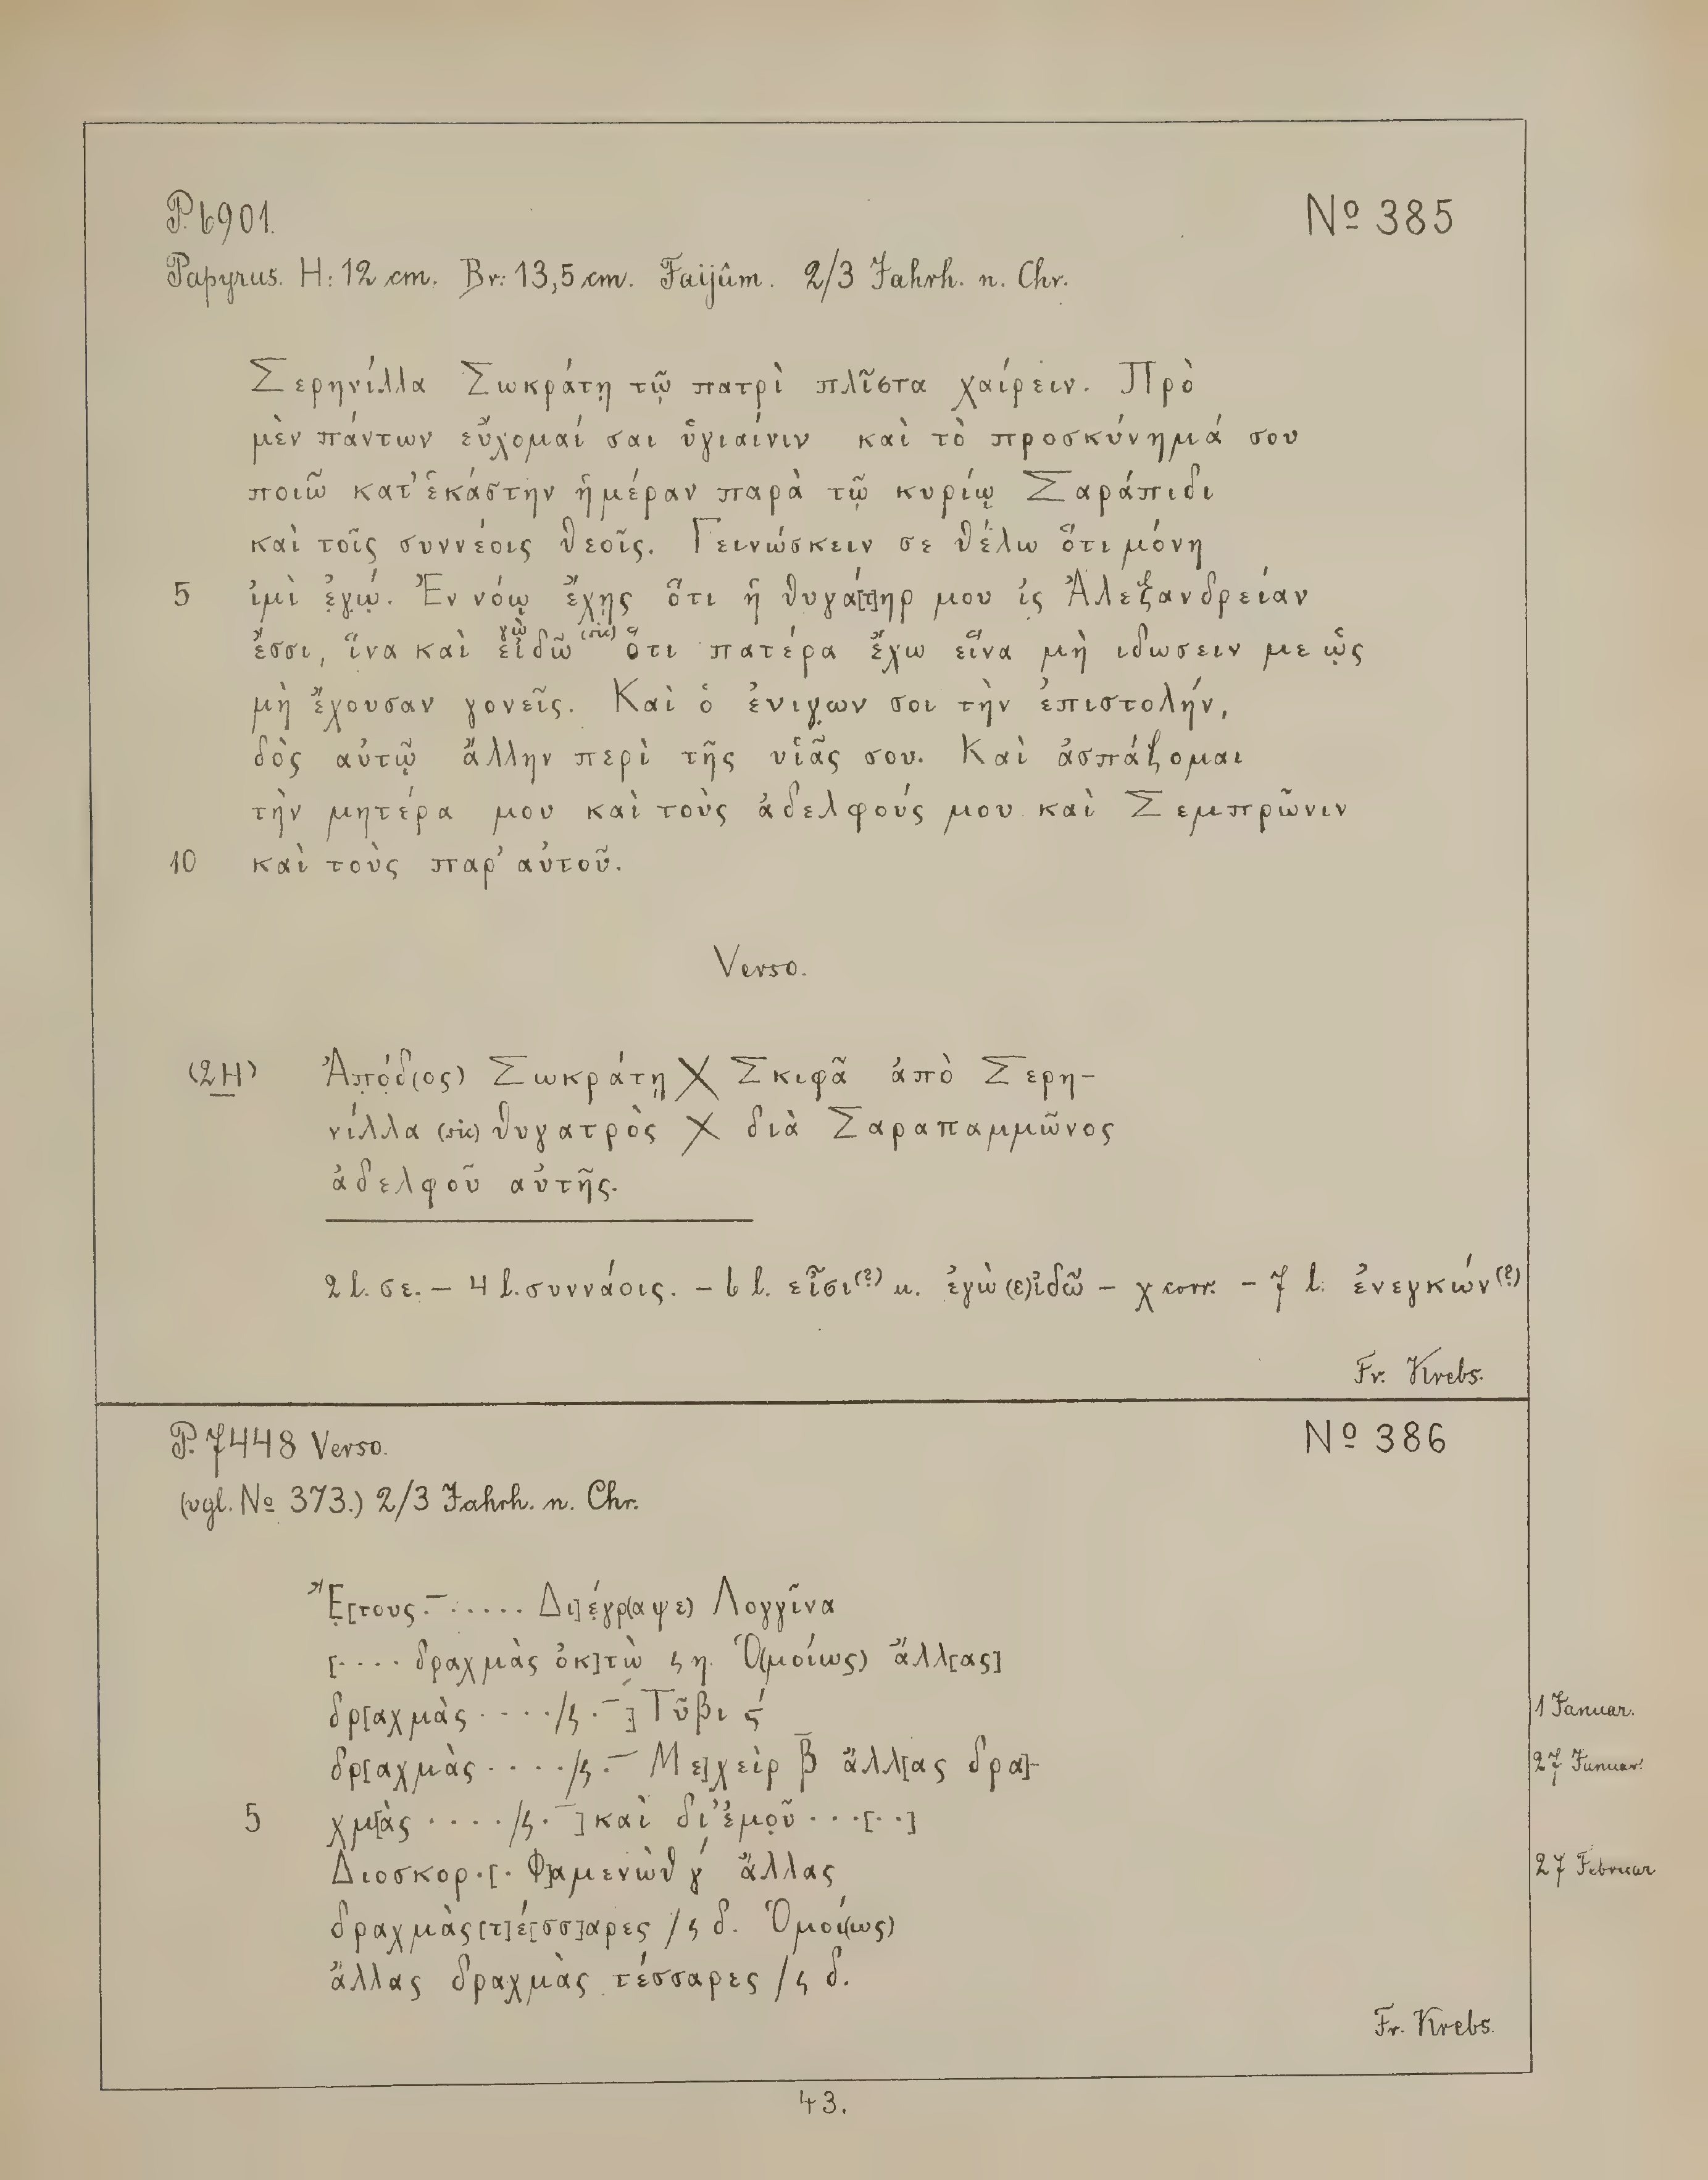 P. 6901.
Nº 385
Papyrus. H: 12 cm. Br: 13,5 cm. Faijûm. 2/3 Jahrh. n. Chr.
Σερηνίλλα Σωκράτῃ τῷ πατρὶ πλῖστα χαίρειν. Πρὸ
μὲν πάντων εὔχομαί σαι ὑγιαίνιν καὶ τὸ προσκύνημά σου
ποιῶ κατ' ἑκάστην ἡμέραν παρὰ τῷ κυρίῳ Σαράπιδι
καὶ τοῖς συννέοις θεοῖς. Γεινώσκειν σε θέλω ὅτι μόνη
5 ἰμὶ ἐ̣γ̣ώ̣. Ἐν νόῳ ἔχῃς ὅτι ἡ θυγά[τ]ηρ μου ἰς Ἀλεξανδρείαν
ἔσσι, ἵνα καὶ εἰδῶ γὼ (sic) ὅτι πατέρα ἔχω εἵνα μὴ ιδωσειν με ὡ̣ς
μὴ ἔχουσαν γονεῖς. Καὶ ὁ ἐνιγ̣ων σοι τὴν ἐπιστολήν,
δὸς αὐτῷ ἄλλην περὶ τῆς υἱᾶς σου. Καὶ ἀσπάζομαι
τὴν μητέρα μου καὶ τοὺς ἀδελφούς μου καὶ Σεμπρῶνιν
10 καὶ τοὺς παρ' αὐτοῦ.
Verso.
(2H) Ἀπ̣ό̣δ(ος) Σωκράτῃ X Σκιφᾶ ἀπὸ Σερη-
νίλλα (sic) θυγατρὸς X διὰ Σαραπαμμῶνος
ἀδελφοῦ αὐτῆς.
2 l. σε. – 4 l. συννάοις. – 6 l. εἶσι (?) u. ἐγὼ (ε)ἰδῶ – χ corr. – 7 l. ἐνεγκών (?)
Fr. Krebs.
P. 7448 Verso.
Nº 386
(vgl. Nº 373.) 2/3 Jahrh. n. Chr.
Ἔ̣[τους . ̅ ..... Δι]έ̣γρ(αψε) Λογγῖνα
[.... δραχμὰς ὀκ]τὼ ϛ η. Ὁ(μοίως) ἄλλ[ας]
δρ[αχμὰς ..../ϛ . ̅ ] Τῦβι ϛ́ 1 Januar.
δρ[αχμὰς ..../ϛ . ̅ Με]χεὶρ β̅ ἄλλ[ας δρα]- 27 Januar.
5 χμ[ὰς ..../ϛ . ̅ ] καὶ δι' ἐμο̣ῦ ...[..]
Διοσκορ.[. Φ]αμενὼθ γ́ ἄλλας 27 Februar
δραχμὰς [τ]έ[σσ]αρες /ϛ δ. Ὁμοί(ως)
ἄλλας δραχμὰς τέσσαρες /ϛ δ.
Fr. Krebs.
43.